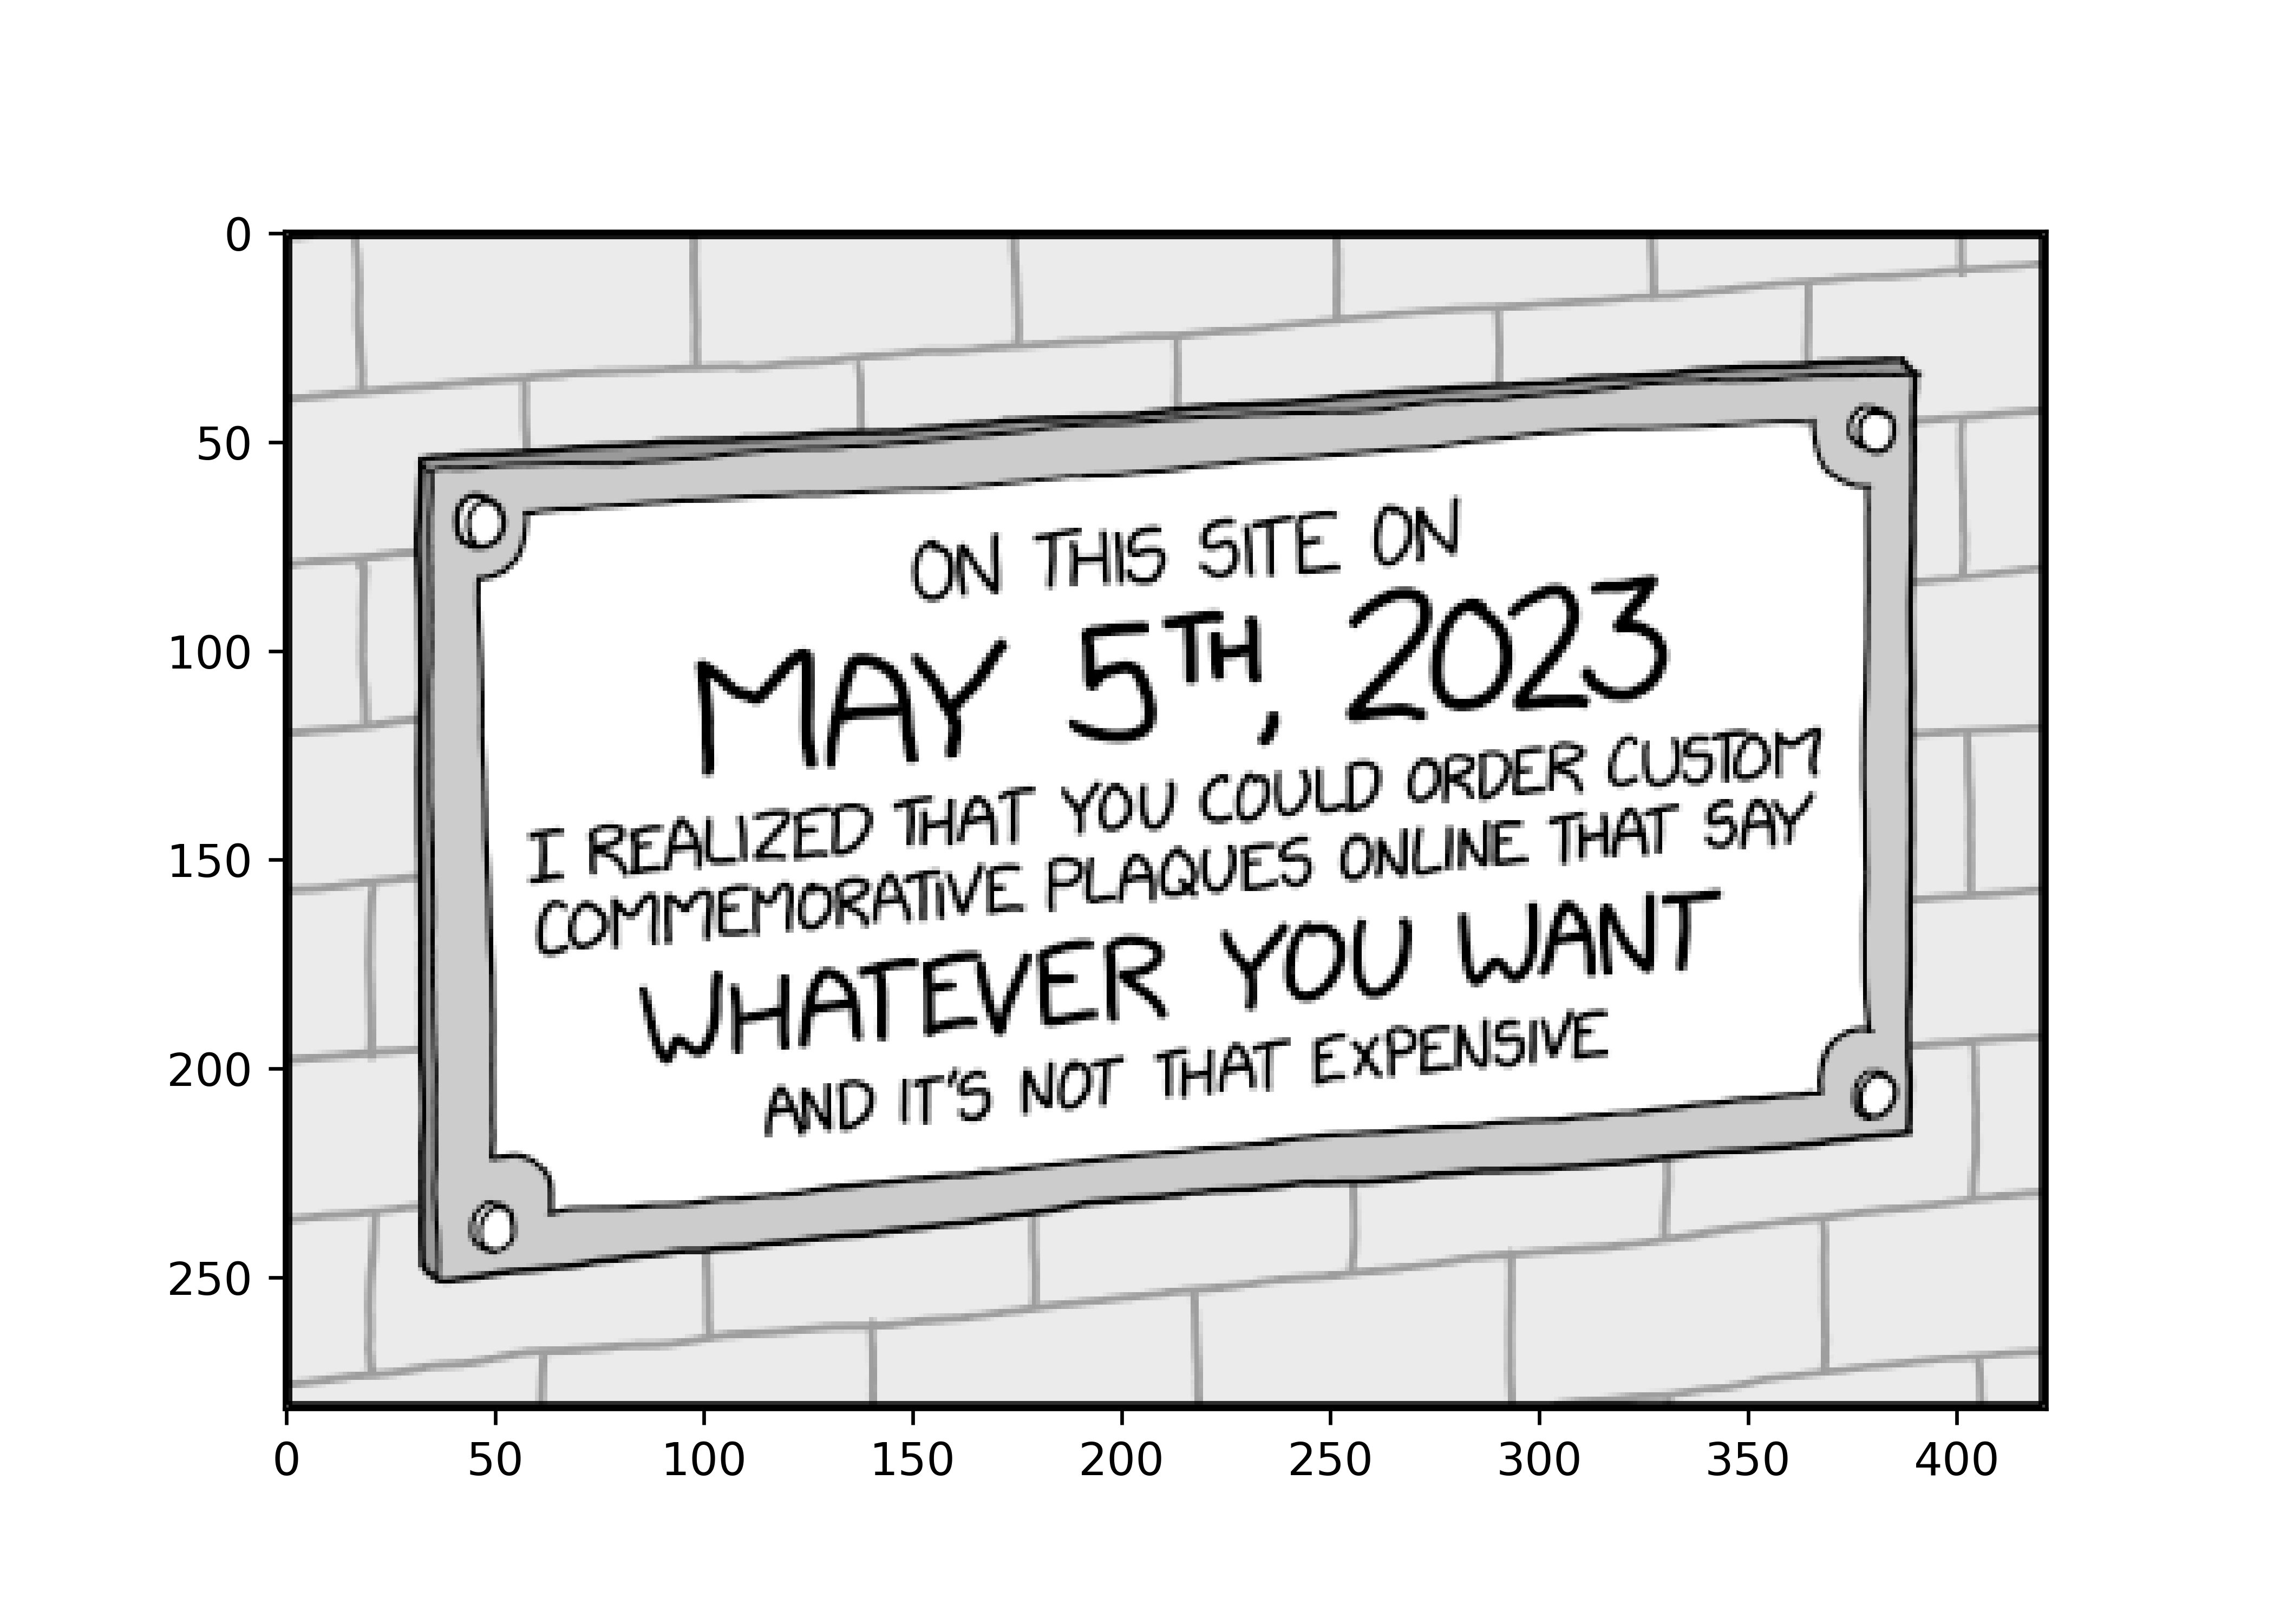 ON THIS SITE ON
MAY 5TH, 2023
I REALIZED THAT YOU COULD ORDER CUSTOM
COMMEMORATIVE PLAQUES ONLINE THAT SAY
WHATEVER YOU WANT
AND IT'S NOT THAT EXPENSIVE
0
50
100
150
200
250
0 50 100 150 200 250 300 350 400